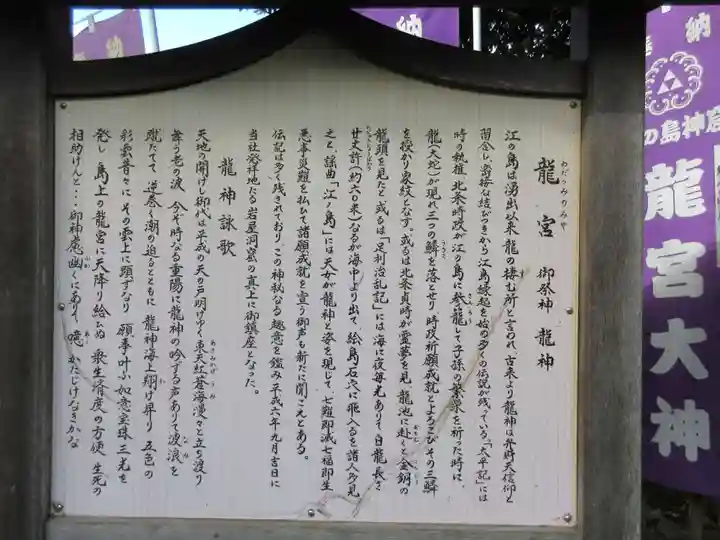 龍宮 御祭神 龍神
わだつみのみや
江の島は湧出以来 龍の棲む所と言われ 古来より龍神は弁財天信仰と
習合し、密接な結びつきから江島縁起を始め多くの伝説が残っている。「太平記」には
時の執権、北条時政が江の島に参籠して子孫の繁栄を祈った時に
龍(大蛇)が現れ三つの鱗を落とせり 時政祈願成就とよろこびその三鱗
を授かり家紋となす。或るは北条貞時が霊夢を見、龍池に赴くと金銅の
龍頭を見たと、或るは「足利治乱記」には海に夜毎光ありて白龍長さ
廿丈許(約六〇米)なるが海中より出て 絵島石穴に飛入るを諸人が見
之と、謡曲「江ノ島」には天女が龍神と姿を現じて、七難即滅七福即生
悪事災難を払いて諸願成就を宣う御声も新たに聞こえとある。
伝記は多く残されており、この神秘なる趣意を鑑み平成六年九月吉日に
当社発祥地たる岩屋洞窟の真上に御鎮座となった。
龍神詠歌
天地の開けし御代は平成の天の戸明けゆく東天紅蒼海漫々と立ち渡り
舞う老の波 今ぞ時なる重陽に龍神の吟ずる声ありて波浪を
蹴たてて 逆巻く潮の迫るとともに 龍神海上翔け昇り 五色の
彩雲沓々に その雲上に顕ずなり 願事叶ふ如意宝珠 三光を
発し 島上の龍宮に天降り給ひぬ 衆生済度の方便 生死の
相助けんと・・・御神慮幽くにありて、噫 かたじけなきかな
納
龍宮大神
の島神
納
納